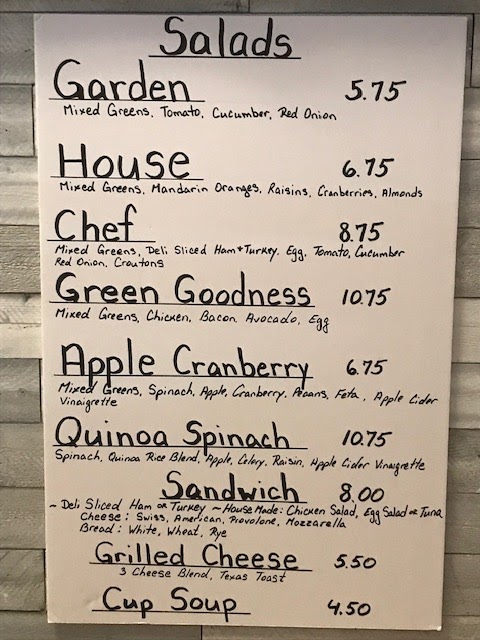 Salads
Garden 5.75
Mixed Greens, Tomato, Cucumber, Red Onion
House 6.75
Mixed Greens, Mandarin Oranges, Raisins, Cranberries, Almonds
Chef 8.75
Mixed Greens, Deli Sliced Ham + Turkey, Egg, Tomato, Cucumber
Red Onion, Croutons
Green Goodness 10.75
Mixed Greens, Chicken, Bacon, Avocado, Egg
Apple Cranberry 6.75
Mixed Greens, Spinach, Apple, Cranberry, Pecans, Feta, Apple Cider
Vinaigrette
Quinoa Spinach 10.75
Spinach, Quinoa Rice Blend, Apple, Celery, Raisin, Apple Cider Vinaigrette
Sandwich 8.00
~ Deli Sliced Ham or Turkey ~ House Made: Chicken Salad, Egg Salad or Tuna
Cheese: Swiss, American, Provolone, Mozzarella
Bread: White, Wheat, Rye
Grilled Cheese 5.50
3 Cheese Blend, Texas Toast
Cup Soup 4.50